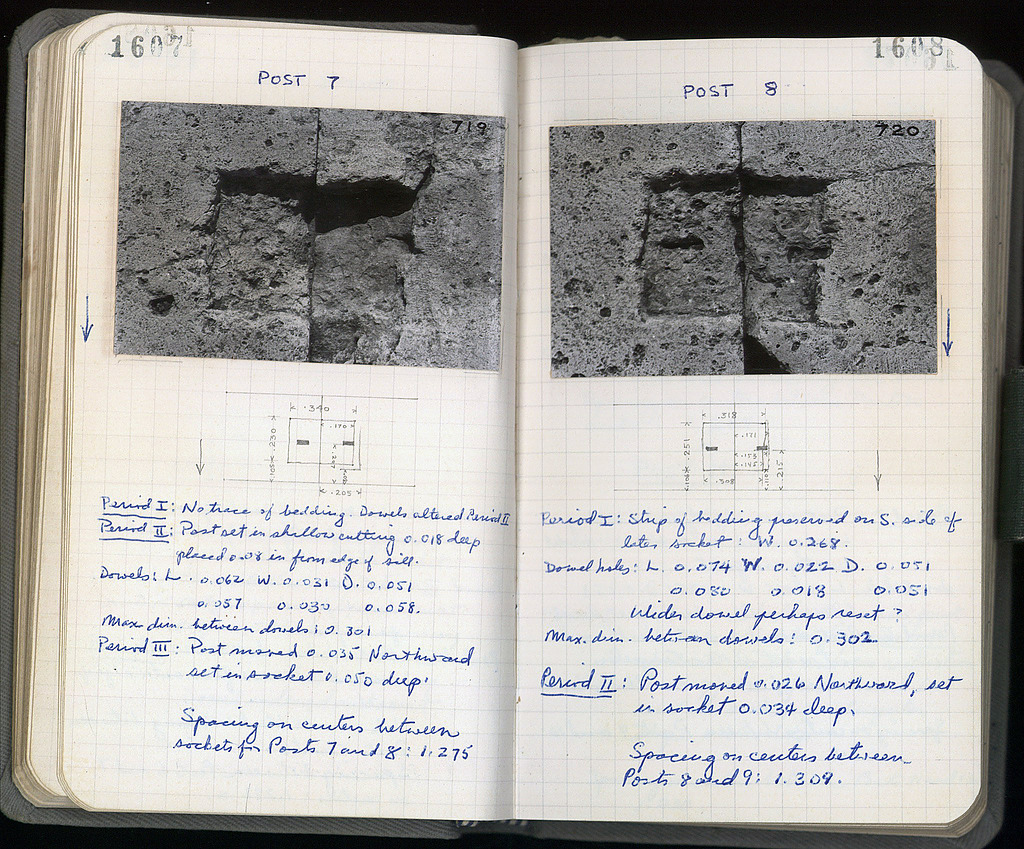 1607
POST 7
719
.340
.170
.230
.105
.205
Period I: No trace of bedding. Dowels altered Period II
Period II: Post set in shallow cutting 0.018 deep
placed 0.08 in from edge of sill.
Dowels: L. 0.062 W. 0.031 D. 0.051
0.057 0.030 0.058.
Max. dim. between dowels: 0.301
Period III: Post moved 0.035 Northward
set in socket 0.050 deep.
Spacing on centers between
sockets for Posts 7 and 8: 1.275
1608
POST 8
720
.318
.251
.171
.153
.145
.105
.308
.215
Period I: Strip of bedding preserved on S. side of
later socket: W. 0.268.
Dowel holes: L. 0.074 W. 0.022 D. 0.051
0.080 0.018 0.051
Wider dowel perhaps reset?
Max. dim. between dowels: 0.302
Period II: Post moved 0.026 Northward, set
in socket 0.034 deep.
Spacing on centers between
Posts 8 and 9: 1.309.